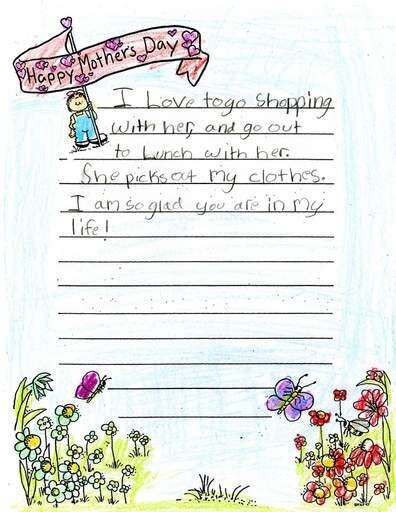 Happy Mother's Day
I Love to go Shopping
with her, and go out
to Lunch with her.
She picks out my clothes.
I am so glad you are in my
life!